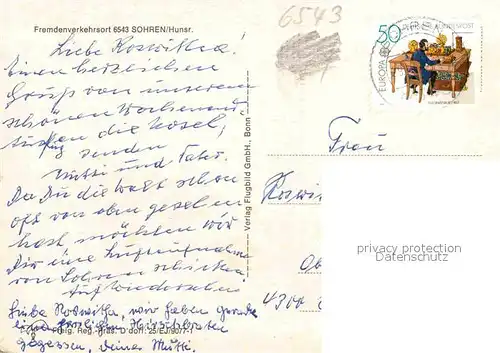 Fremdenverkehrsort 6543 SOHREN/Hunsr.
6543
50 DEUTSCHE BUNDESPOST
EUROPA
Liebe Roswitha!
Einen herzlichen
Gruß von unserem
schönen Wochenend
die Mosel,
senden
Mutti und Vater.
Da Du die Welt schon
oft von oben gesehen
hast möchten wir
Dir eine Luftaufnahme
von Sohren schicken.
Auf Wiedersehen
Liebe Roswitha, wir haben gerade
einen herrlichen Hirschbraten
gegessen, Deine Mutti.
Verlag Flugbild GmbH., Bonn
Frau
Roswi
4300
privacy protection
Datenschutz